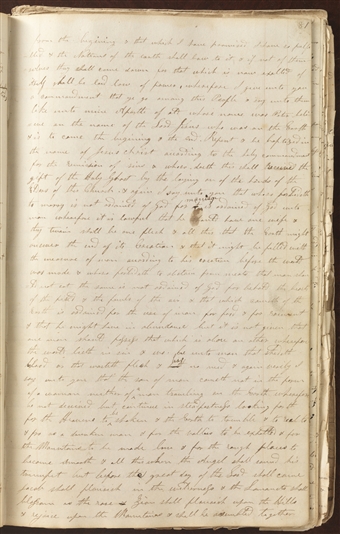 from the begining & that which I have promised I have so fulfil
led & the Nations of the earth shall bow to it & if not of them
selves they shall come down for that which is now exalted of
itself shall be laid low of power wherefore I give unto you
a commandment that ye go among this People & say unto them
like unto mine Apostle of old whose name was Peter believe
on the name of the Lord Jesus who was on the Earth
& is to come the begining & the end Repent & be baptized in
the name of Jesus Christ according to the holy commandment
for the remission of sins & whoso doeth this shall receive the
gift of the Holy Ghost by the laying on of the hands of the
Elders of this Church & again I say unto you that whoso forbiddeth
to marry is not ordained of God for marriage is ordained of God unto
man wherefore it is lawful that he should have one wife &
they twain shall be one flesh & all this that the Earth might
answer the end of its Creation & that it might be filled with
the measure of man according to his creation before the world
was made & whoso forbideth to abstain from meats that man should
not eat the same is not ordained of God for behold the beasts
of the field & the fowls of the air & that which cometh of the
earth is ordained for the use of man for food & for raiment
& that he might have in abundance but it is not given that
one man should possess that which is above an other wherefore
the world lieth in sin & wo be unto man that sheddeth
blood or that wasteth flesh & hath no need & again verily I
say unto you that the son of man cometh not in the form
of a woman neither of a man traveling on the Earth wherefore
be not deceived but continue in steadfastness looking forth
for the Heavens to be shaken & the Earth to tremble & to reel to
& fro as a drunken man & for the vallies to be exalted & for
the Mountains to be made low & for the rough places to
become smooth & all this when the Angel shall sound his
trumpet but before the great day of the Lord shall come
Jacob shall flourish in the wilderness & the Lamanites shall
blossom as the rose Zion shall flourish upon the Hills
& rejoice upon the Mountains & shall be assembled together